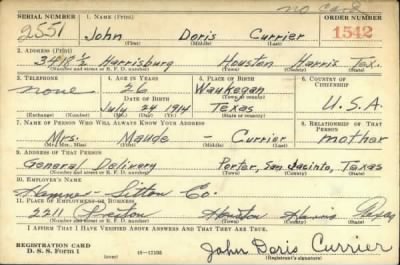 no card
SERIAL NUMBER 1. NAME (Print) ORDER NUMBER
2551 John Doris Currier 1542
(First) (Middle) (Last)
2. ADDRESS (Print)
3418 1/2 Harrisburg Houston Harris Tex.
(Number and street or R. F. D. number) (Town) (County) (State)
3. TELEPHONE 4. AGE IN YEARS 5. PLACE OF BIRTH 6. COUNTRY OF CITIZENSHIP
none 26 Waukegan
DATE OF BIRTH (Town or county)
July 24 1914 Texas U.S.A.
(Exchange) (Number) (Mo.) (Day) (Yr.) (State or country)
7. NAME OF PERSON WHO WILL ALWAYS KNOW YOUR ADDRESS 8. RELATIONSHIP OF THAT PERSON
Mrs. Maude - Currier mother
(Mr., Mrs., Miss) (First) (Middle) (Last)
9. ADDRESS OF THAT PERSON
General Delivery Porter, San Jacinto, Texas
(Number and street or R. F. D. number) (Town) (County) (State)
10. EMPLOYER'S NAME
Sutton Co.
11. PLACE OF EMPLOYMENT OR BUSINESS
Preston Houston Harris Texas
(Number and street or R. F. D. number) (Town) (County) (State)
I AFFIRM THAT I HAVE VERIFIED ABOVE ANSWERS AND THAT THEY ARE TRUE.
REGISTRATION CARD
D. S. S. Form 1 John Doris Currier
(over) (Registrant's signature)